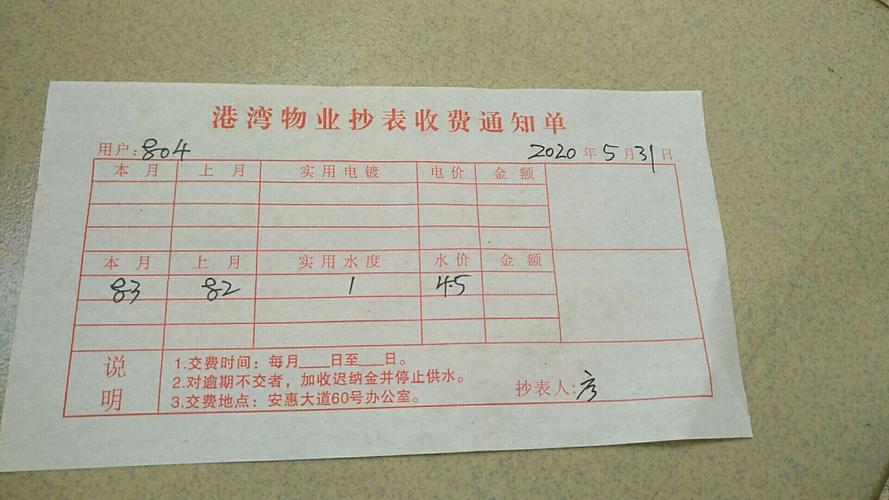 港湾物业抄表收费通知单
用户:804 2020年5月31日
本月 上月 实用电镀 电价 金额
本月 上月 实用水度 水价 金额
83 82 1 4.5
说明
1.交费时间：每月___日至___日。
2.对逾期不交者，加收迟纳金并停止供水。
3.交费地点：安惠大道60号办公室。
抄表人: